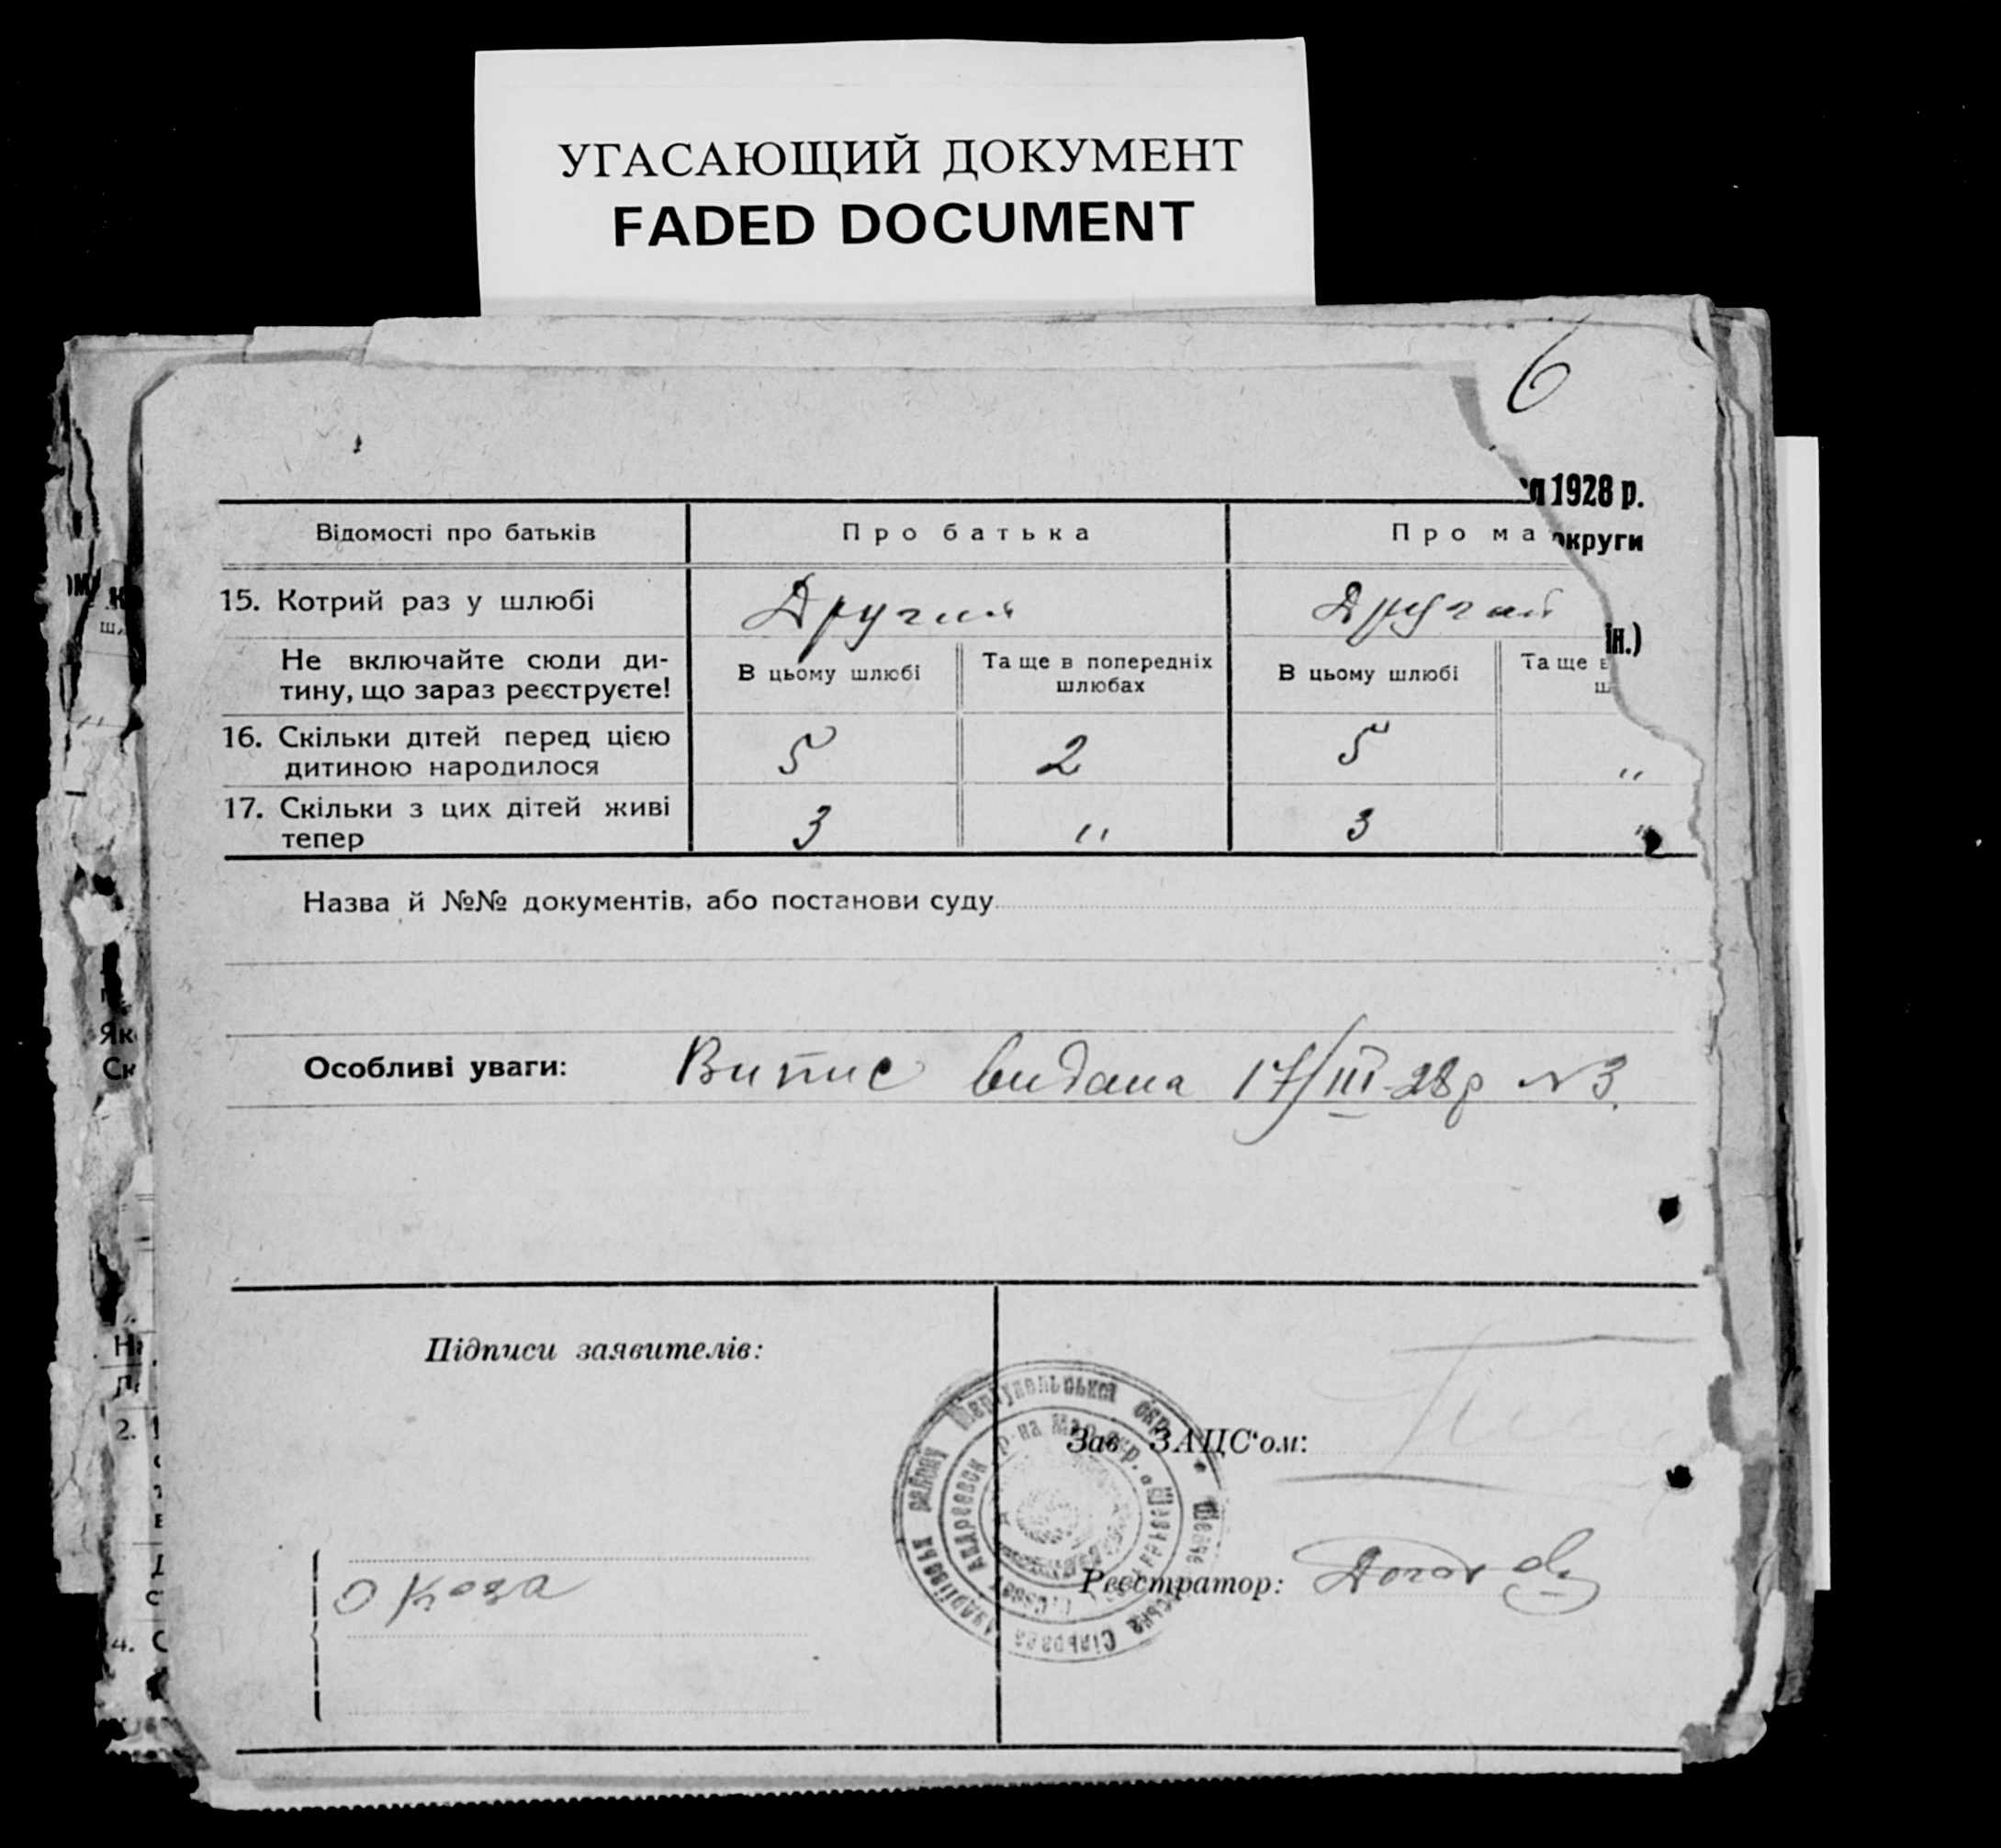 УГАСАЮЩИЙ ДОКУМЕНТ
FADED DOCUMENT
6
1928 р.
округи
ін.)
Відомості про батьків Про батька Про ма
15. Котрий раз у шлюбі Другий Другий
Не включайте сюди ди-
тину, що зараз реєструєте!
В цьому шлюбі Та ще в попередніх
шлюбах
В цьому шлюбі Та ще в
ш
16. Скільки дітей перед цією
дитиною народилося
5 2 5 "
17. Скільки з цих дітей живі
тепер
3 " 3 "
Назва й №№ документів, або постанови суду
Особливі уваги: Випис видана 17/III-28р №3.
Підписи заявителів:
О Коза
Зав. ЗАЦС'ом:
Реєстратор:
Маріупольської окр. * Шевченківська Сільрада
району
р-на Мар. окр.
Як
Ск
2.
4.